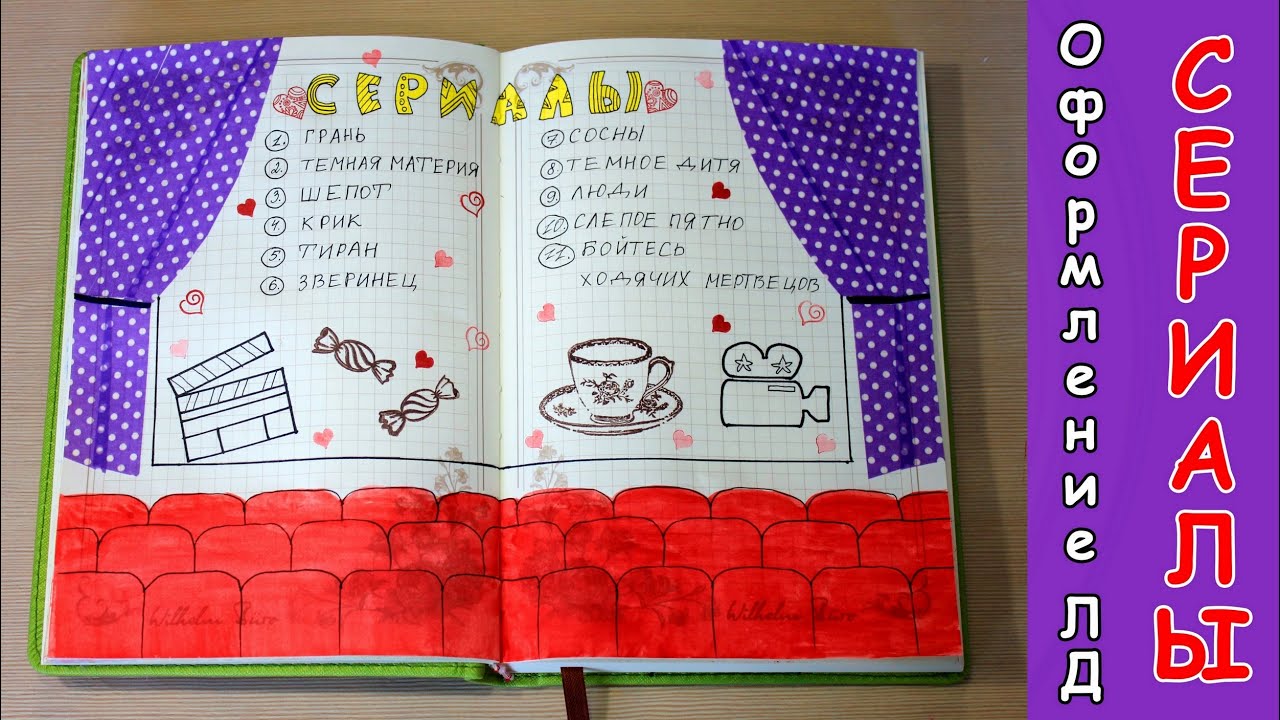 СЕРИАЛЫ
1. ГРАНЬ
2. ТЕМНАЯ МАТЕРИЯ
3. ШЕПОТ
4. КРИК
5. ТИРАН
6 ЗВЕРИНЕЦ
7 СОСНЫ
8 ТЕМНОЕ ДИТЯ
9. ЛЮДИ
10. СЛЕПОЕ ПЯТНО
11. БОЙТЕСЬ
ХОДЯЧИХ МЕРТВЕЦОВ
Wilhelm Büro
Wilhelm Büro
Оформление ЛД
СЕРИАЛЫ